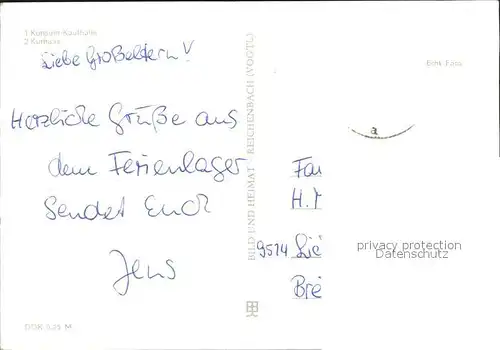 1 Konsum-Kaufhalle
2 Kurhaus
Echt Foto
Liebe Großeltern!
Herzliche Grüße aus
dem Ferienlager
Sendet Euch
Jens
BILD UND HEIMAT REICHENBACH (VOGTL)
a
Fa
H.
9514
Bre
privacy protection
Datenschutz